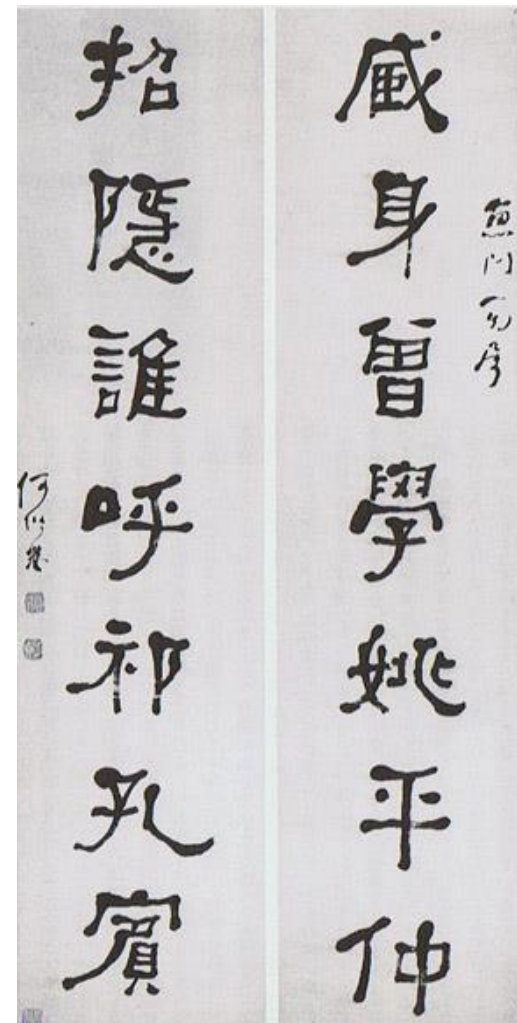 臧身曾學姚平仲
招隱誰呼祁孔賓
何紹基